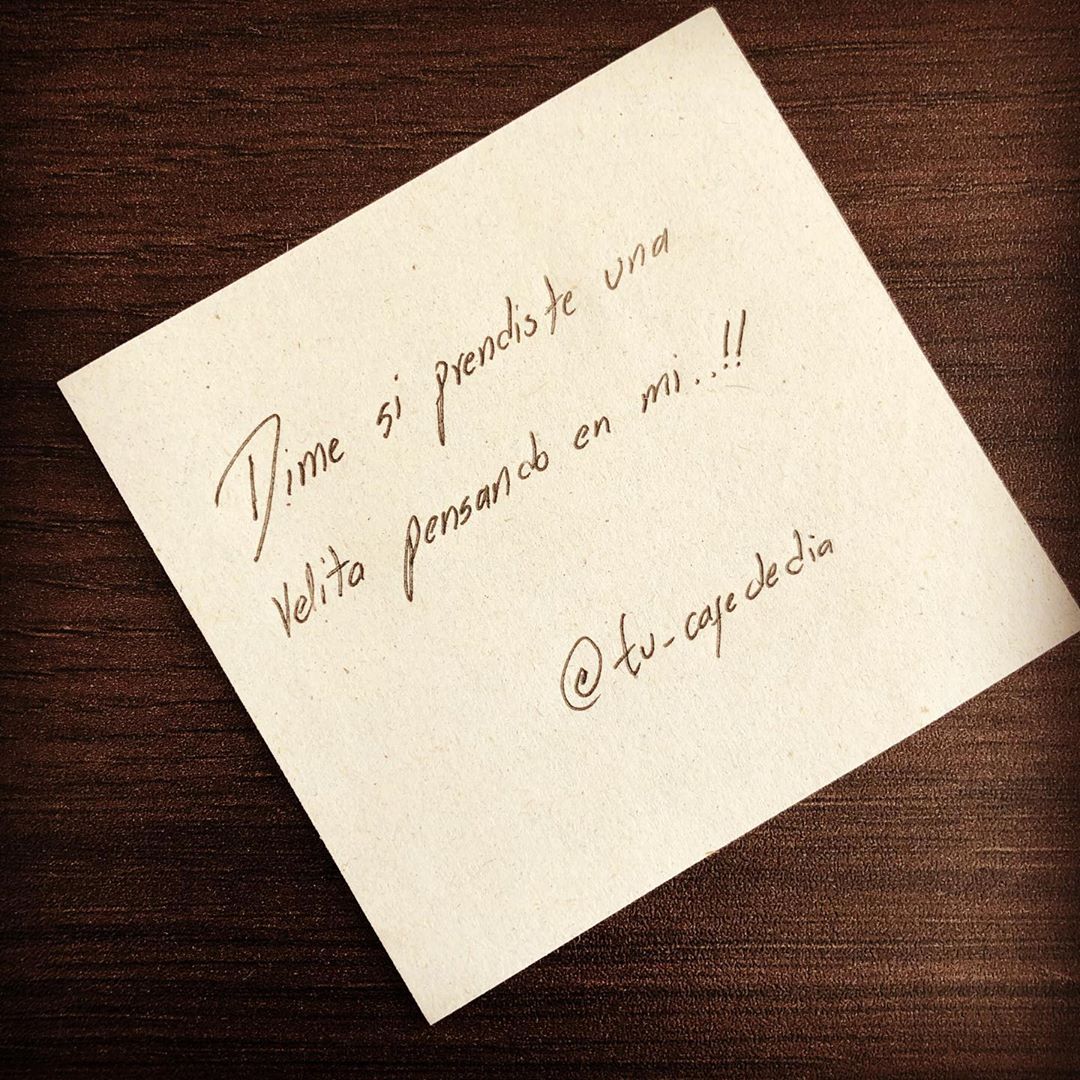 Dime si prendiste una
velita pensando en mi..!!
@tu_cafededia